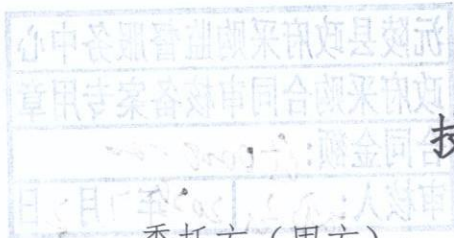 沅陵县政府采购监督服务中心
政府采购合同审核备案专用章
合同金额：
技
审核人： 年 月 日
委托方（甲方）